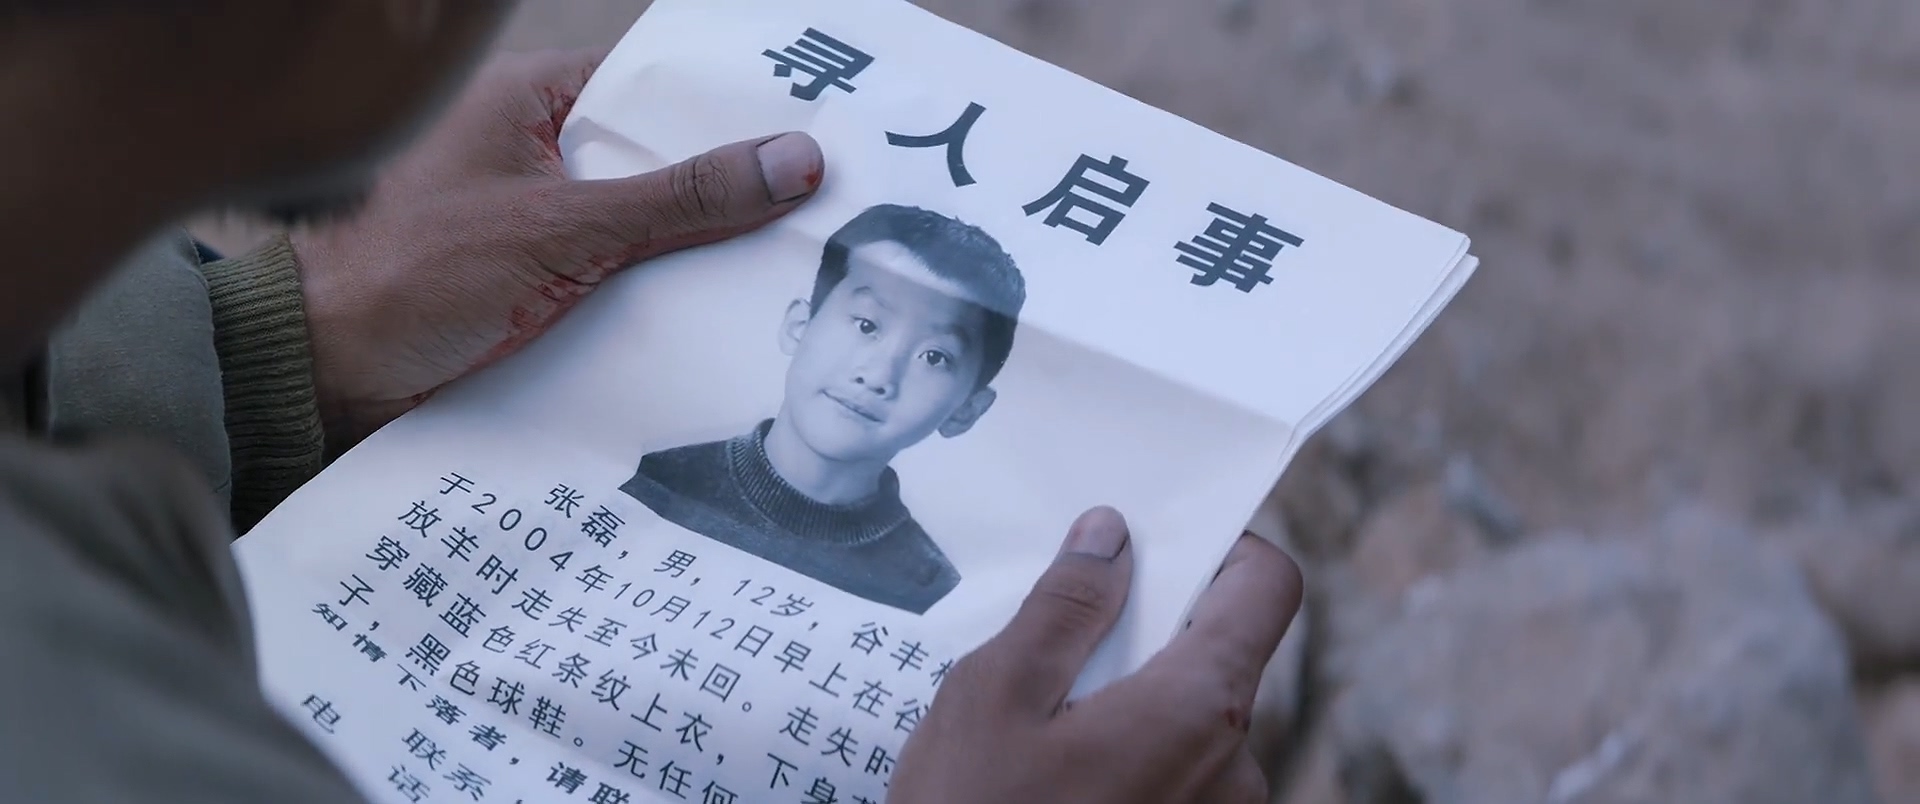 寻人启事
张磊，男，12岁，谷丰
于2004年10月12日早上在谷
放羊时走失至今未回。走失时
穿藏蓝色红条纹上衣，下身
子，黑色球鞋。无任何
知情下落者，请联
联系
电话